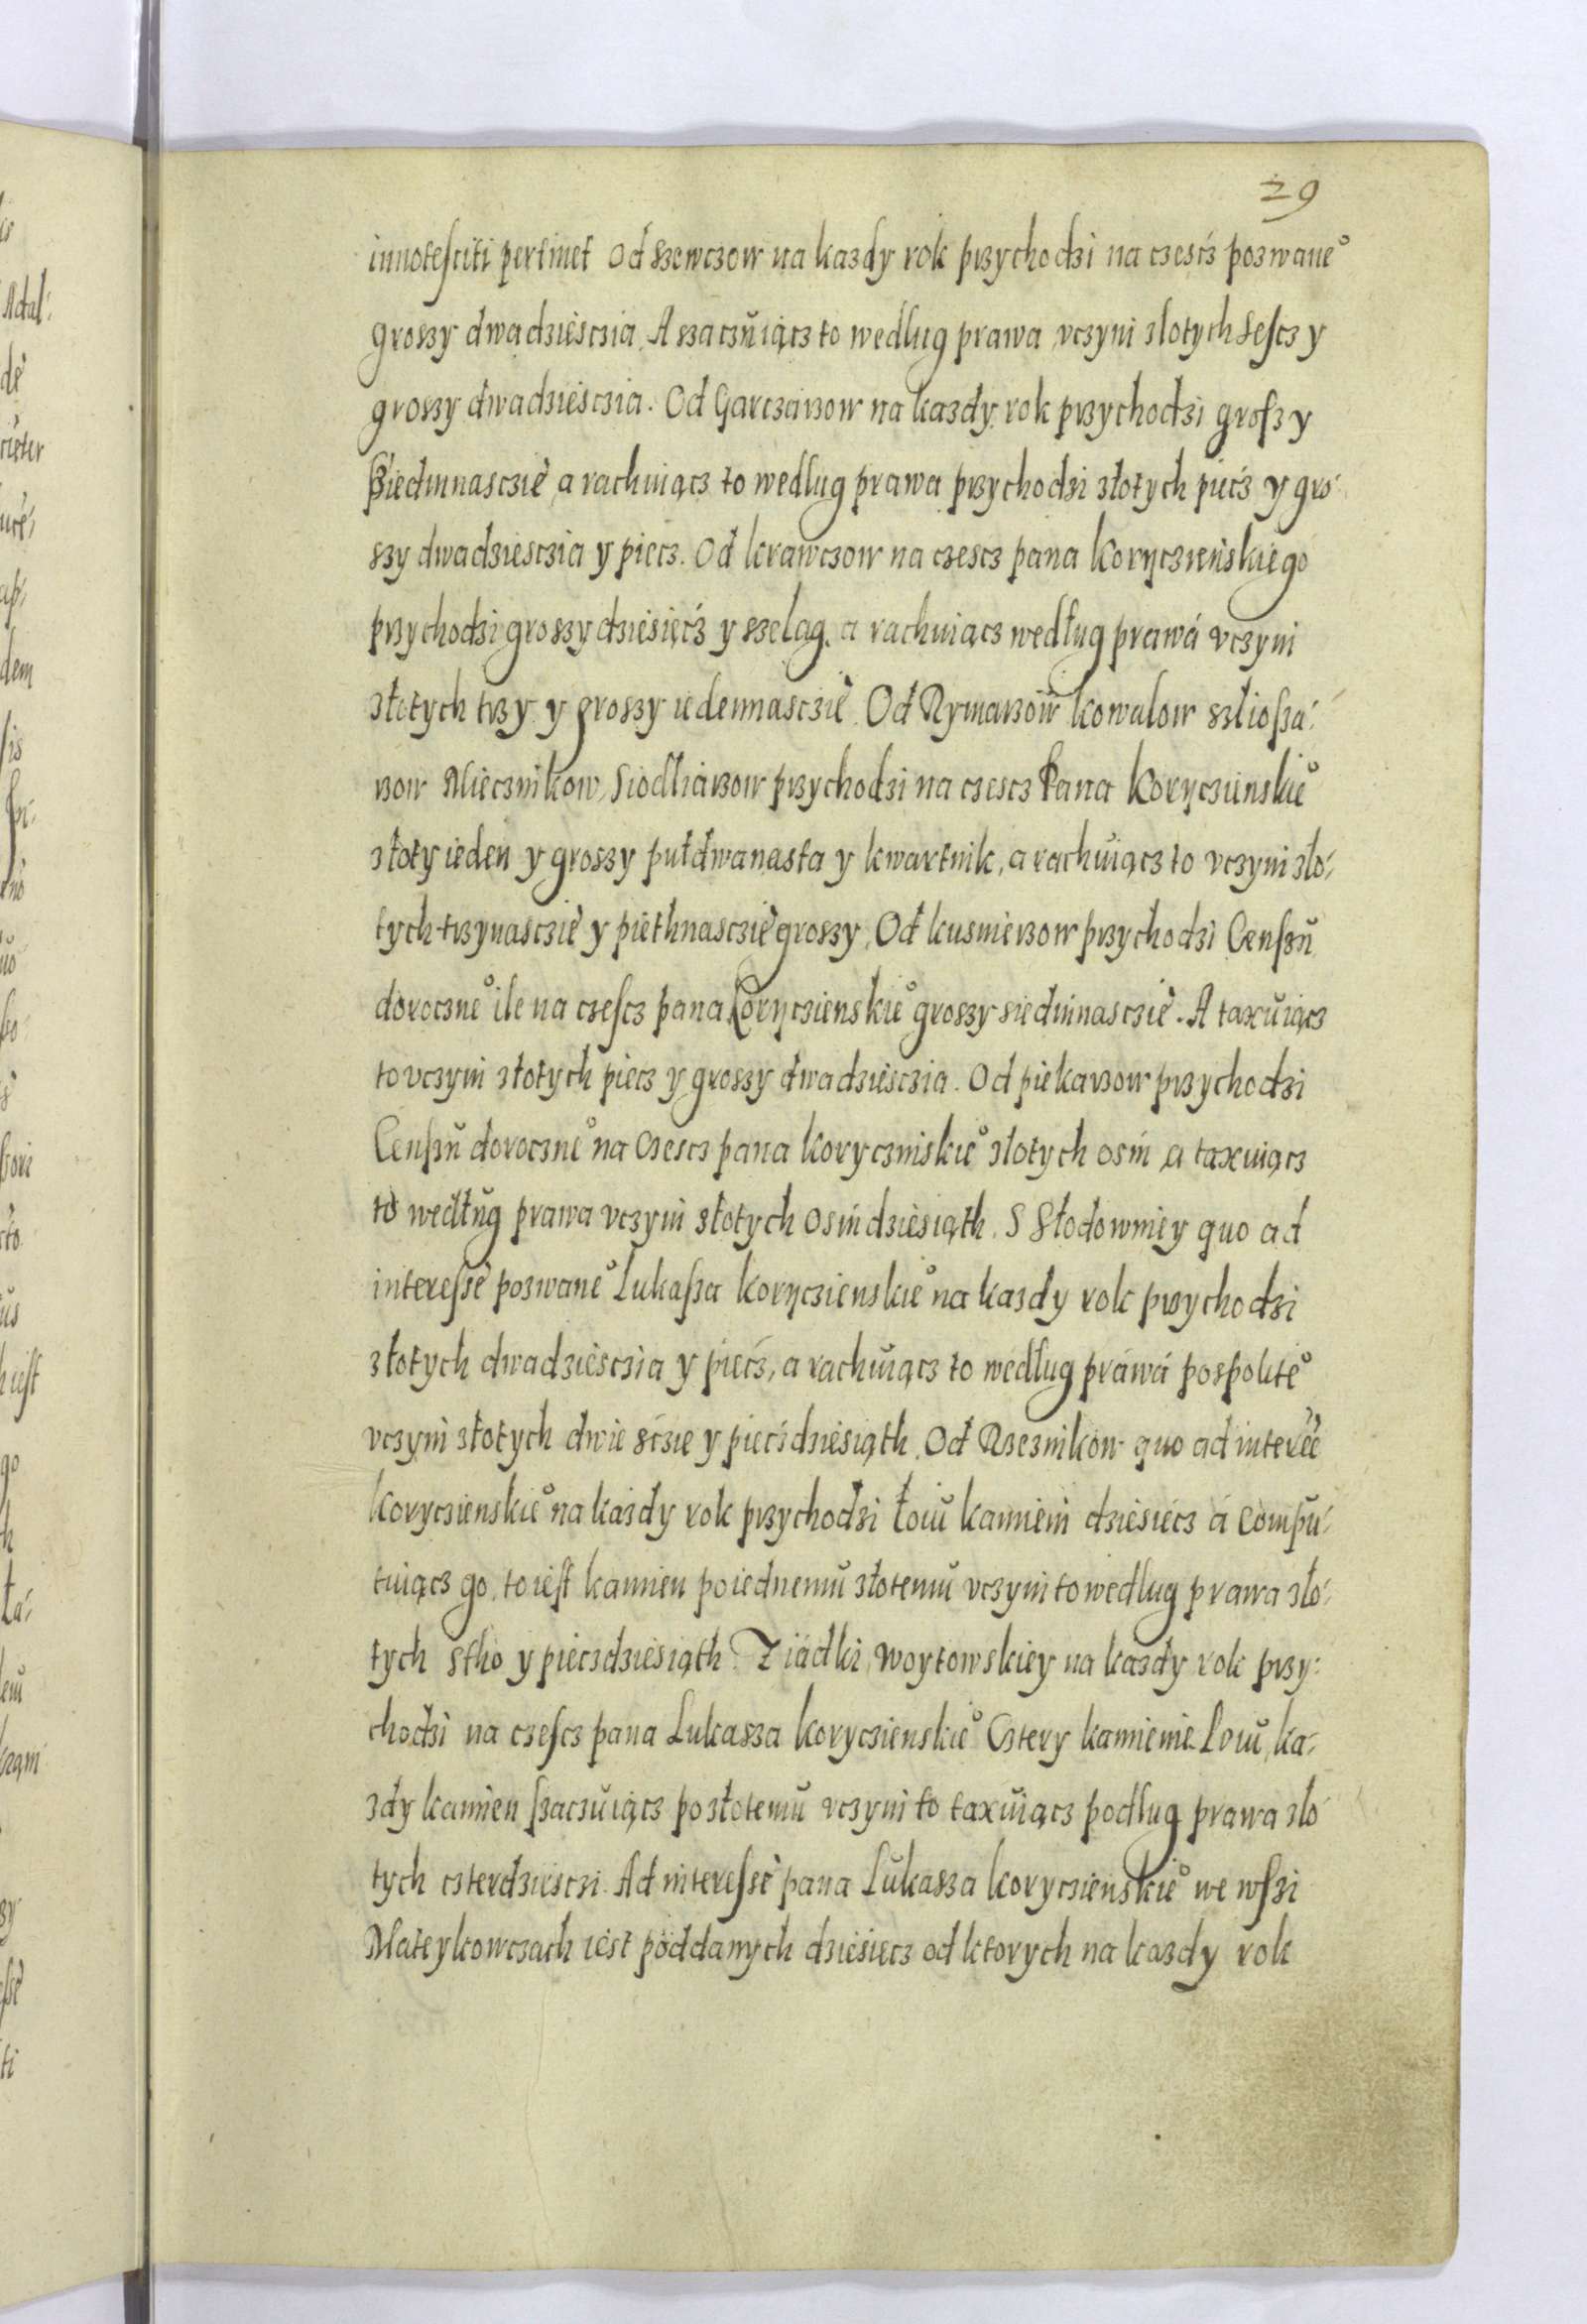 29
innotesciti pertinet Od Szewczow na kazdy rok przychodzi na czesćz pozwane°
groszy dwadzièsczia, A szaczuiącz to wedlug prawa vczyni złotych sescz y
groszy dwadzièsczia. Od Garczarzow na kazdy rok przychodzi groszy
Siedmnasczie a rachuiącz to wedlug prawa przychodzi złotych piećz y gro-
szy dwadziesczia y piecz. Od krawczow na czescz pana Koryczieńskiego
przychodzi groszy dziesięćz y szelag, a rachuiącz według prawá vczyni
złotych trzy y groszy iedennasczie. Od Rymarzow kowalow szliosza-
rzow Miecznikow, Siodliarzow przychodzi na czescz Pana Koryczienskie°
złoty ieden y groszy pułdwanasta y kwartnik, a rachuiącz to vczyni zło-
tych trzynasczie y piethnasczie groszy, Od kusnierzow przychodzi Censzu
doroczne° ile na czescz pana Koryczienskie° groszy siedmnasczie. A taxuiącz
to vczyni złotych piecz y groszy dwadziesczia. Od piekarzow przychodzi
Censzu doroczne° na Czescz pana koryczinskie° złotych osm, a taxuiącz
to według prawa vczyni złotych osmdziesiąth. S Słodowniey quo ad
interesse pozwane° Lukasza koryczienskie° na kazdy rok przychodzi
złotych dwadziesczia y piećz, a rachuiącz to według práwá pospolite°
vczyni złotych dwie sćzie y piećzdziesiąth. Od Rzeznikow quo ad interèè
koryczienskie° na kazdy rok przychodzi łoiu kamieni dziesiecz á Compu-
tuiącz go, to iest kamien po iednemu złotemu vczyni to wedlug prawa zło-
tych stho y pieczdziesiąth. Z iádki woytowskiey na kazdy rok przy-
chodzi na czescz pana Lukasza koryczienskie° Cztery kamienie Loiu, ka-
zdy kamien szaczuiącz po złotemu vczyni to taxuiącz podlug prawa zło
tych czterdziesczi. Ad interesse pana Lukasza koryczienskie° we wszi
Mateykowczach iest poddanych dziesiecz od ktorych na kazdy rok